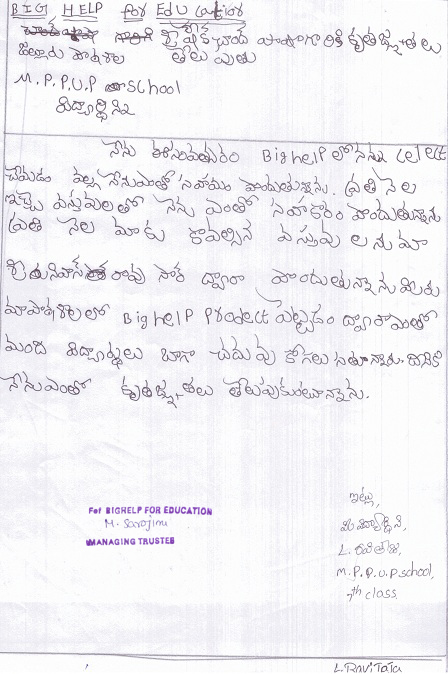 BIG HELP for Education
శ్రీ చాంద్ పాషాగారికి కృతజ్ఞతలు
జిల్లూరు పాఠశాల తెలుపుతు
M.P.P.U.P school
విద్యార్థిని
నేను ఈసంవత్సరం Big help లో నన్ను celect
చేయడం వల్ల నేనుఎంతో సహాయం పొందుతున్నాను. ప్రతి నెల
ఇచ్చే వస్తువులతో నేను ఎంతో సహకారం పొందుతున్నాను
ప్రతి నెల మాకు కావల్సిన వస్తువు లను మా
శ్రీనివాస రావు సార్ ద్వారా పొందుతున్నాను
మాపాఠశాలలో Big help Product పెట్టడం ద్వారా ఎంతో
మంది విద్యార్థులు బాగా చదువు కోగలు గుతూన్నారు. దానికి
నేనుఎంతో కృతజ్ఞతలు తెలుపుకుంటూన్నాను.
For BIGHELP FOR EDUCATION
M. Sarojini
MANAGING TRUSTEE
ఇట్లు,
మీ విద్యార్థిని
L. రవితేజ,
M.P.P.U.P school,
7th class
L. RaviTaja